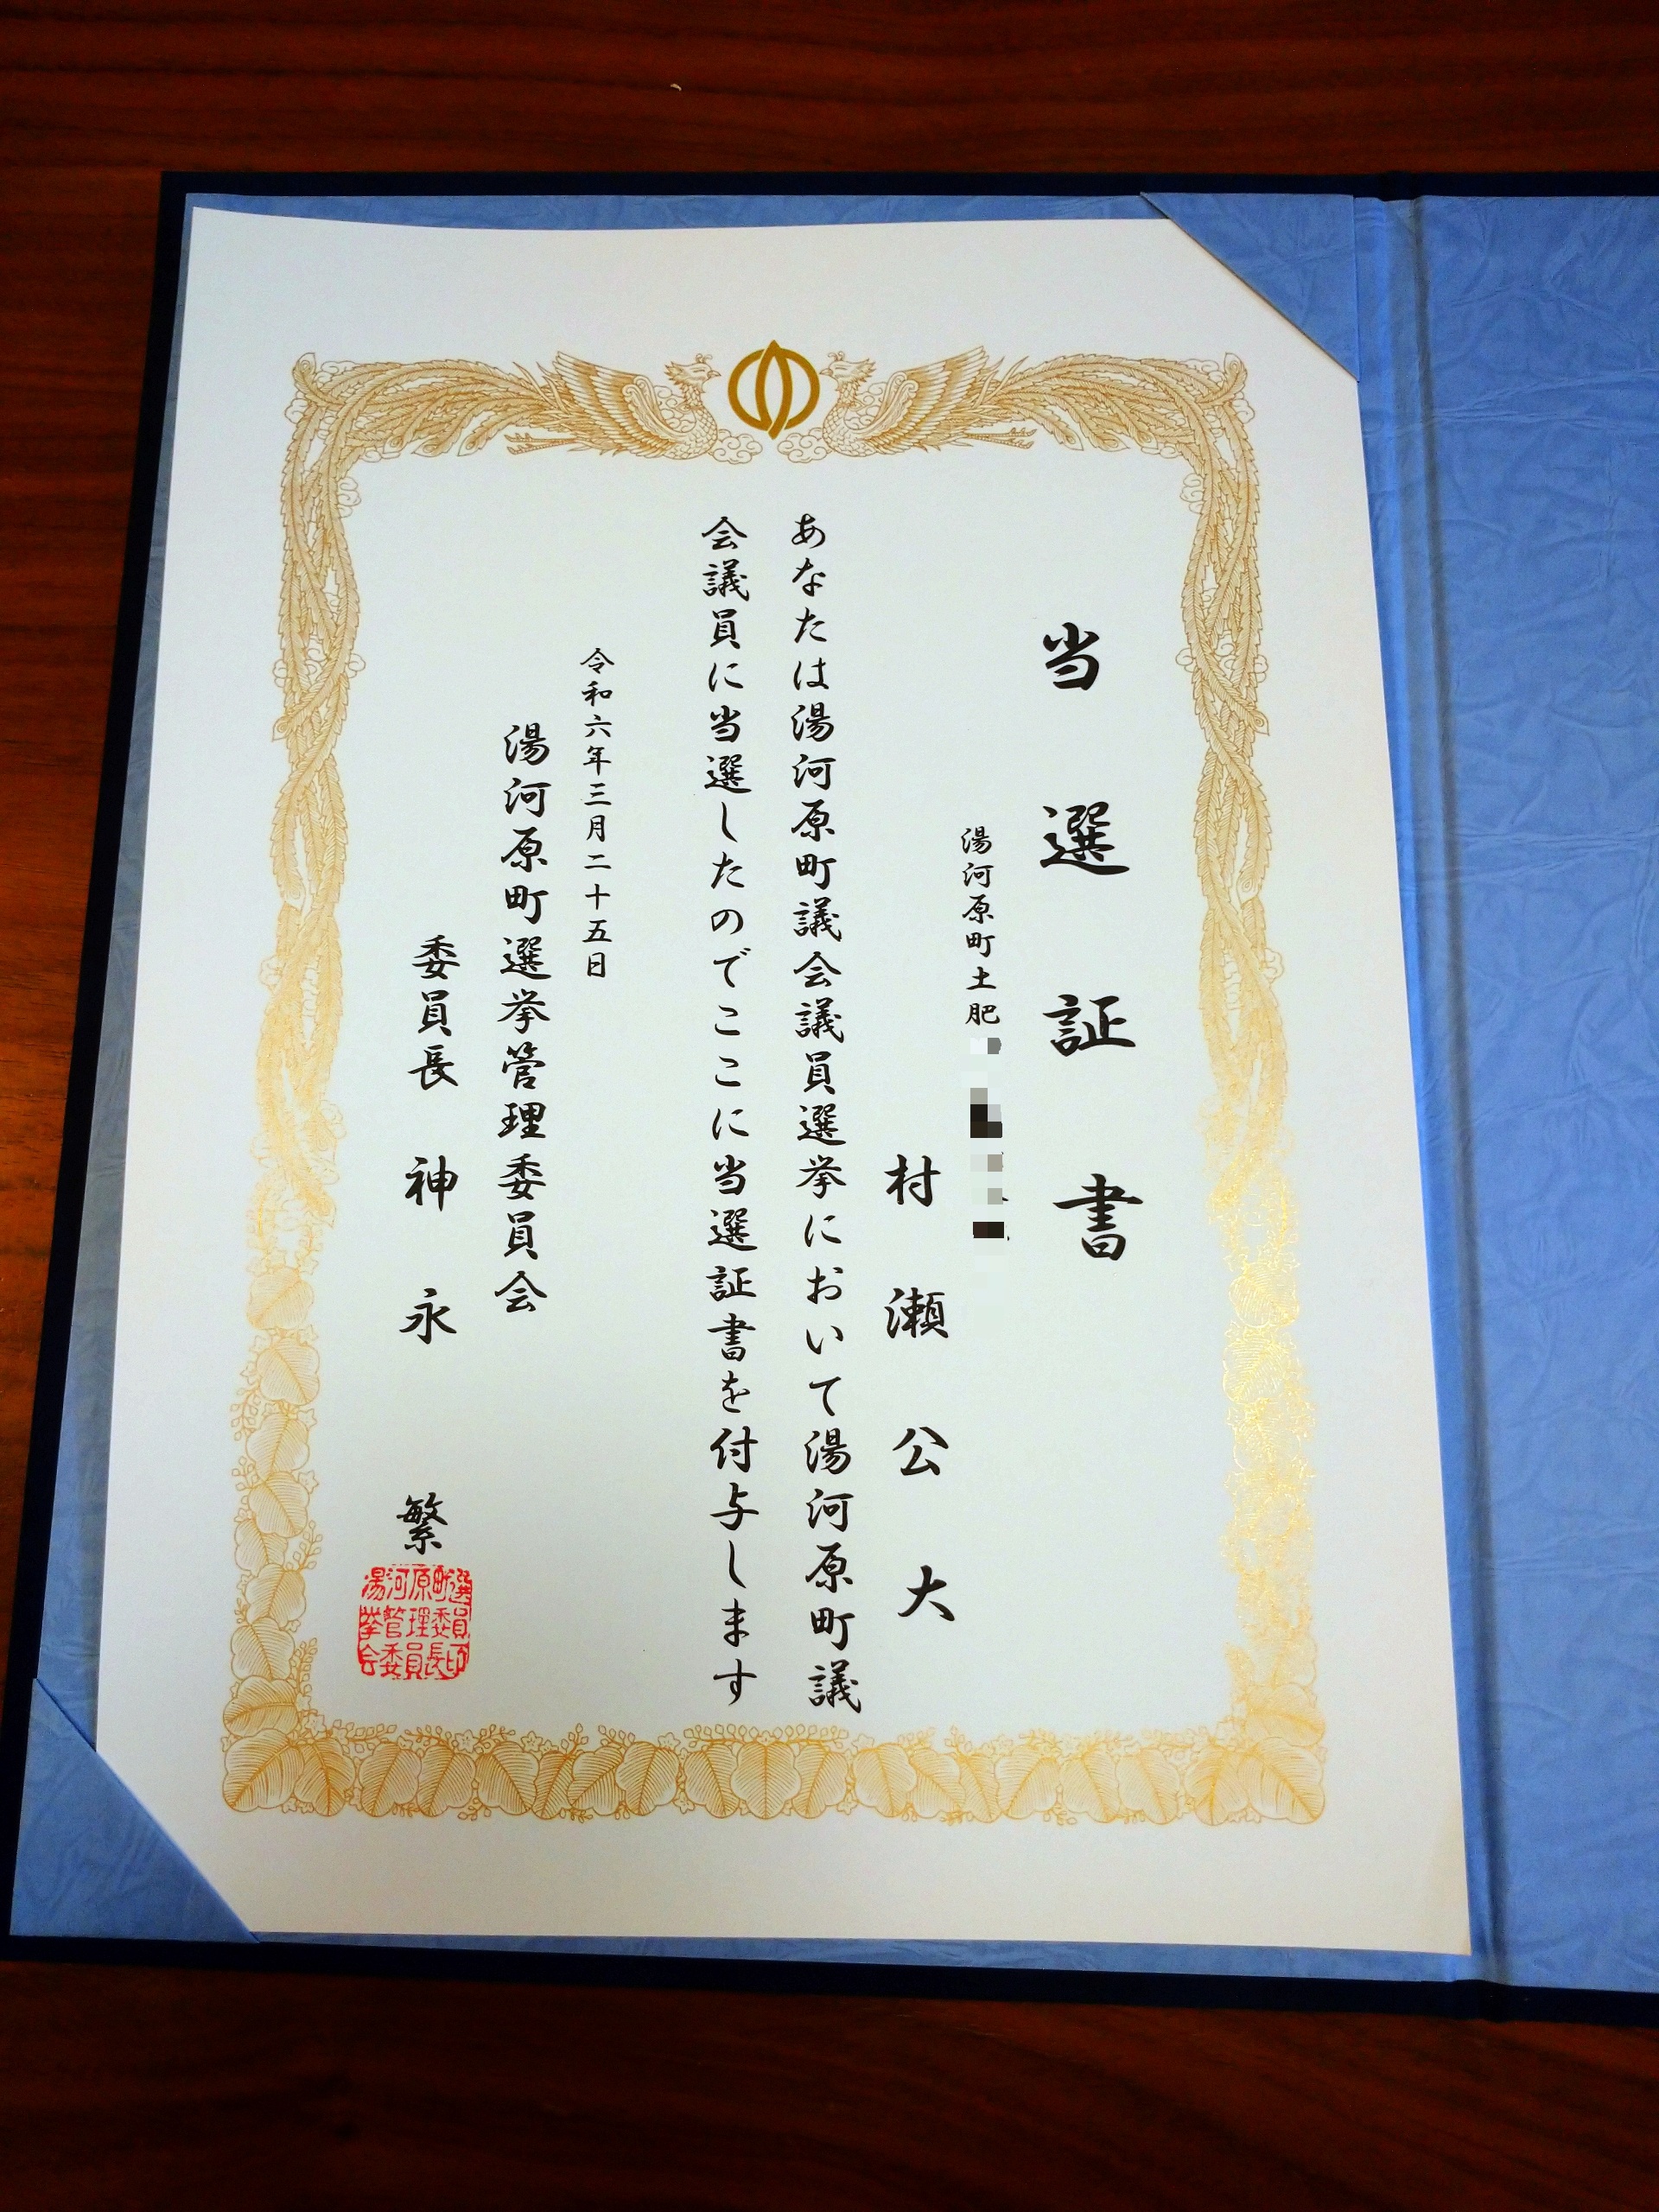 当選証書
湯河原町土肥
村瀬公大
あなたは湯河原町議会議員選挙において湯河原町議
会議員に当選したのでここに当選証書を付与します
令和六年三月二十五日
湯河原町選挙管理委員会
委員長 神永 繁
湯河原町選
挙管理委員
会委員長印